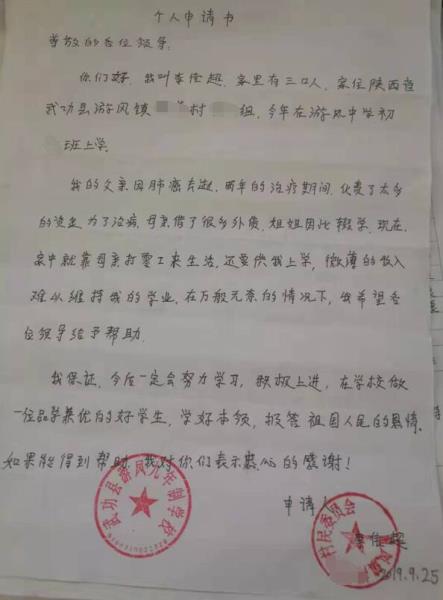 个人申请书
尊敬的各位领导:
你们好,我叫李佳超,家里有三口人,家住陕西省
武功县游凤镇 村 组,今年在游凤中学初
班上学。
我的父亲因肺癌去逝,两年的治疗期间,花费了太多
的资金,为了治病,母亲借了很多外债,姐姐因此辍学,现在,
家中就靠母亲打零工来生活,还要供我上学,微薄的收入
难以维持我的学业,在万般无奈的情况下,我希望各
位领导给予帮助.
我保证,今后一定会努力学习,积极上进,在学校做
一位品学兼优的好学生,学好本领,报答祖国人民的恩情。
如果能得到帮助,我对你们表示衷心的感谢!
申请人
李佳超
2019.9.25
武功县游凤九年制学校
村民委员会